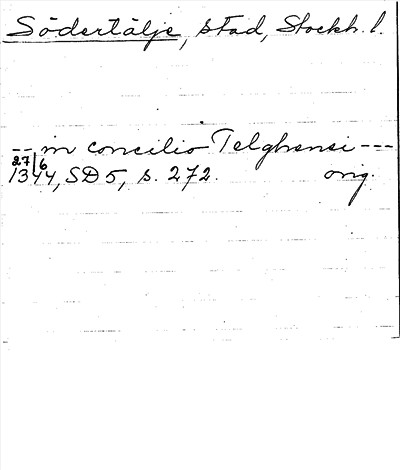 Södertälje, stad, Stockh. l.
-- in concilio Telghensi ---
27/6
1344, SD 5, s. 272. orig.